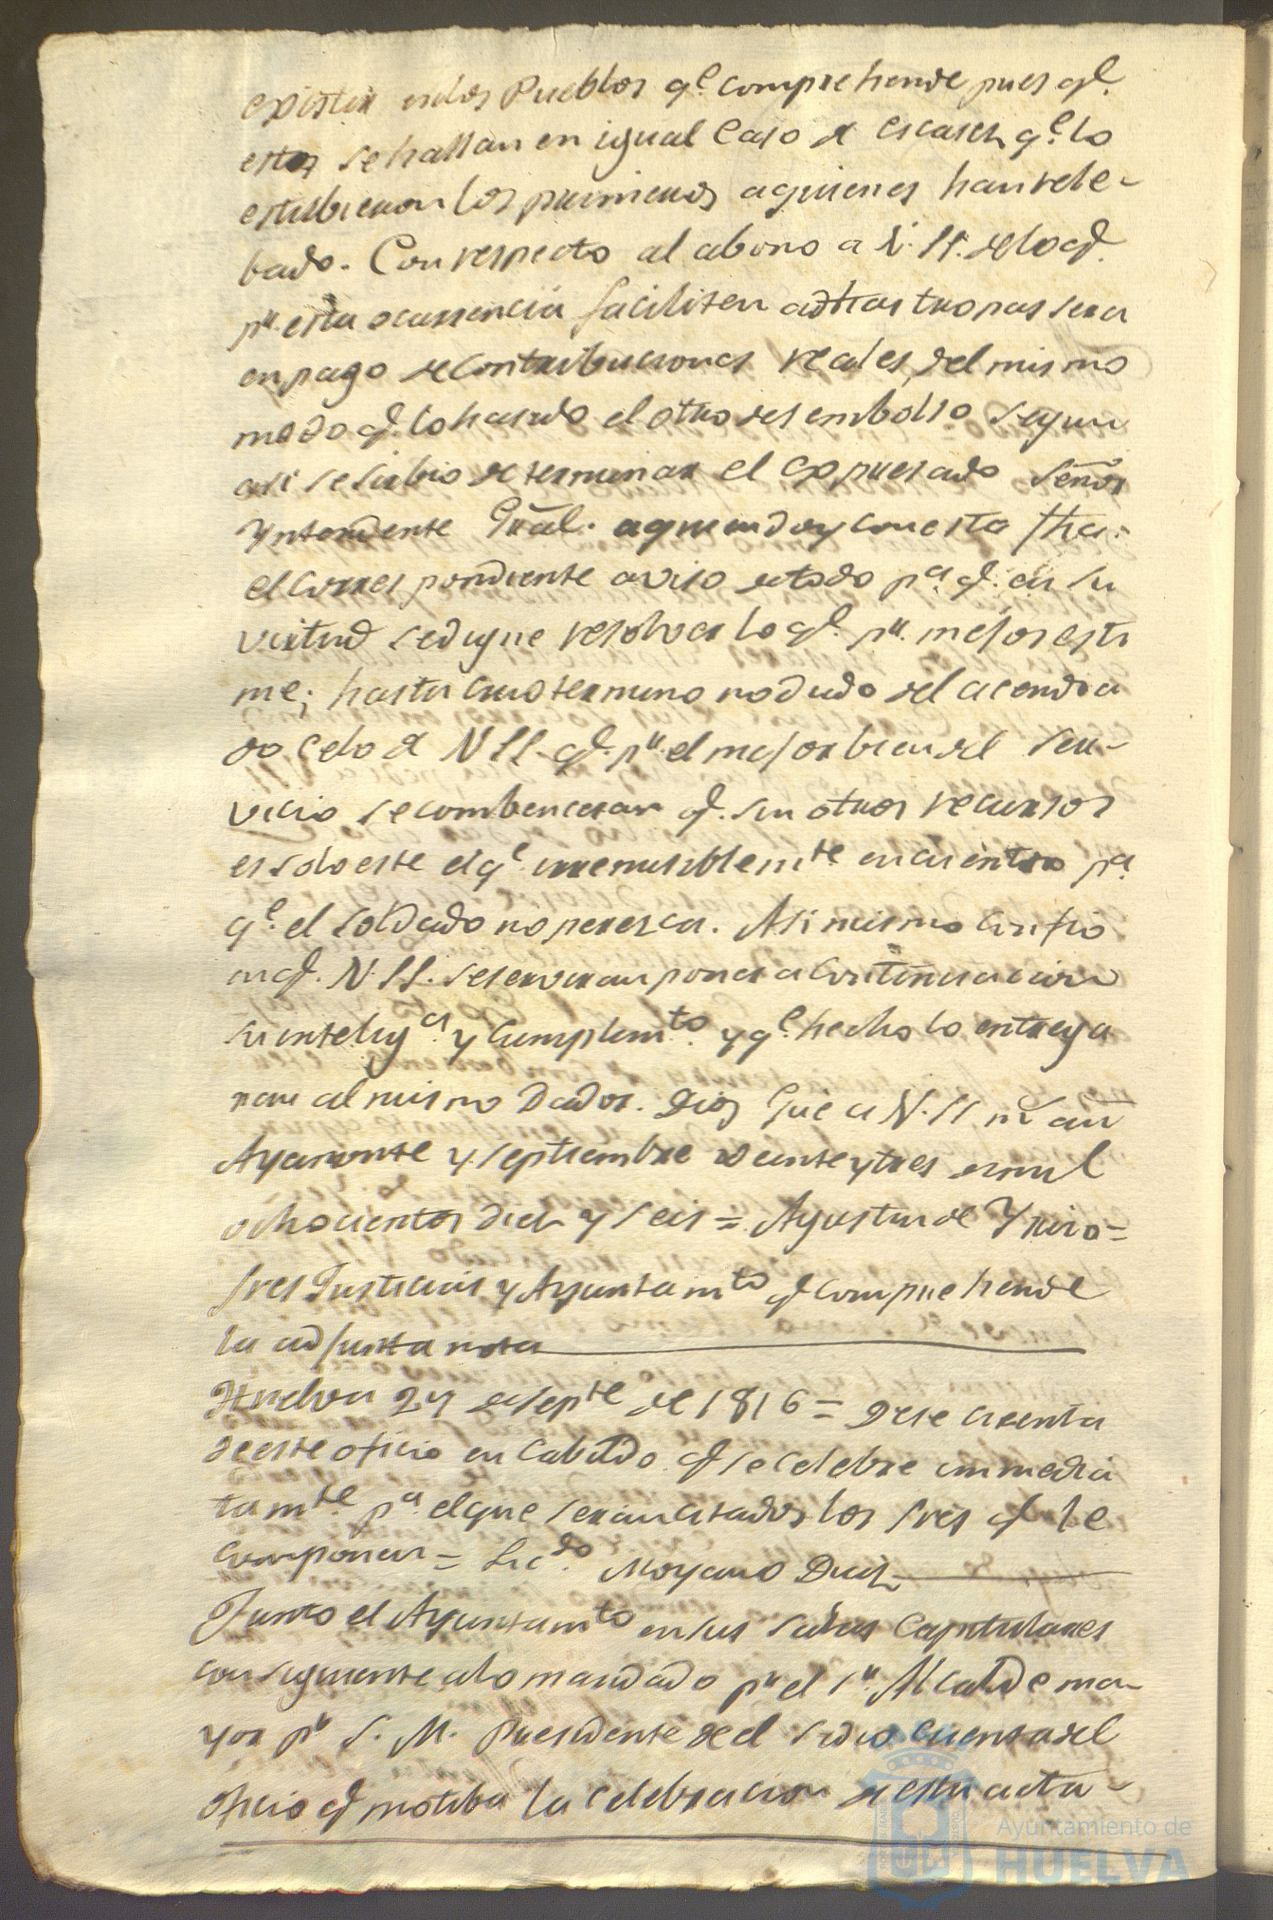 existir en los Pueblos q.e comprehende pues q.e
estos se hallan en igual Caso de escases q.e lo
estubieron los primeros aquienes han rele-
bado. Con respecto al abono a V.SS. de lo q.e
p.r esta ocurrencia faciliten a dhas tropas sera
en pago de Contribuciones reales, del mismo
modo q.e lo ha sido el otro desembolso segun
asi se sirbio determinar el expresado Señor
Yntendente Gral. aquien doy con esta fha.
el correspondiente aviso de todo p.a q.e en su
virtud se digne resolver lo q.e p.r mejor esti
me; hasta cuio termino no dudo del acendra
do celo de V.SS. q.e p.r el mejor bien del Ser-
vicio se combenceran q.e sin otros recursos
es solo este el q.e irremisiblem.te encuentro p.a
q.e el soldado no peresca. Asi mismo confio
en q.e V.SS. se serviran poner a continuacion
su intelig.a y cumplim.to y q.e hecho lo entrega
ran al mismo Dador. Dios gue a V.SS. ms. an.s
Ayamonte y septiembre veinte y tres de mil
ochocientos diez y seis = Agustin de
sres Justicias y Ayuntam.to q.e comprehende
la adjunta nota
Huelva 24 de sep.te de 1816 = Dese cuenta
de este oficio en Cabildo q.e se celebre immedia
tam.te p.a el que seran citados los sres q.e le
componen = Lic.do Moyano Diez
Junto el Ayuntam.to en sus Salas Capitulares
consiguiente a lo mandado p.r el S.r Alcalde ma-
yor p.r S. M. Presidente de el se dio cuenta del
oficio q.e motiba la celebracion de esta acta-
Ayuntamiento de
HUELVA